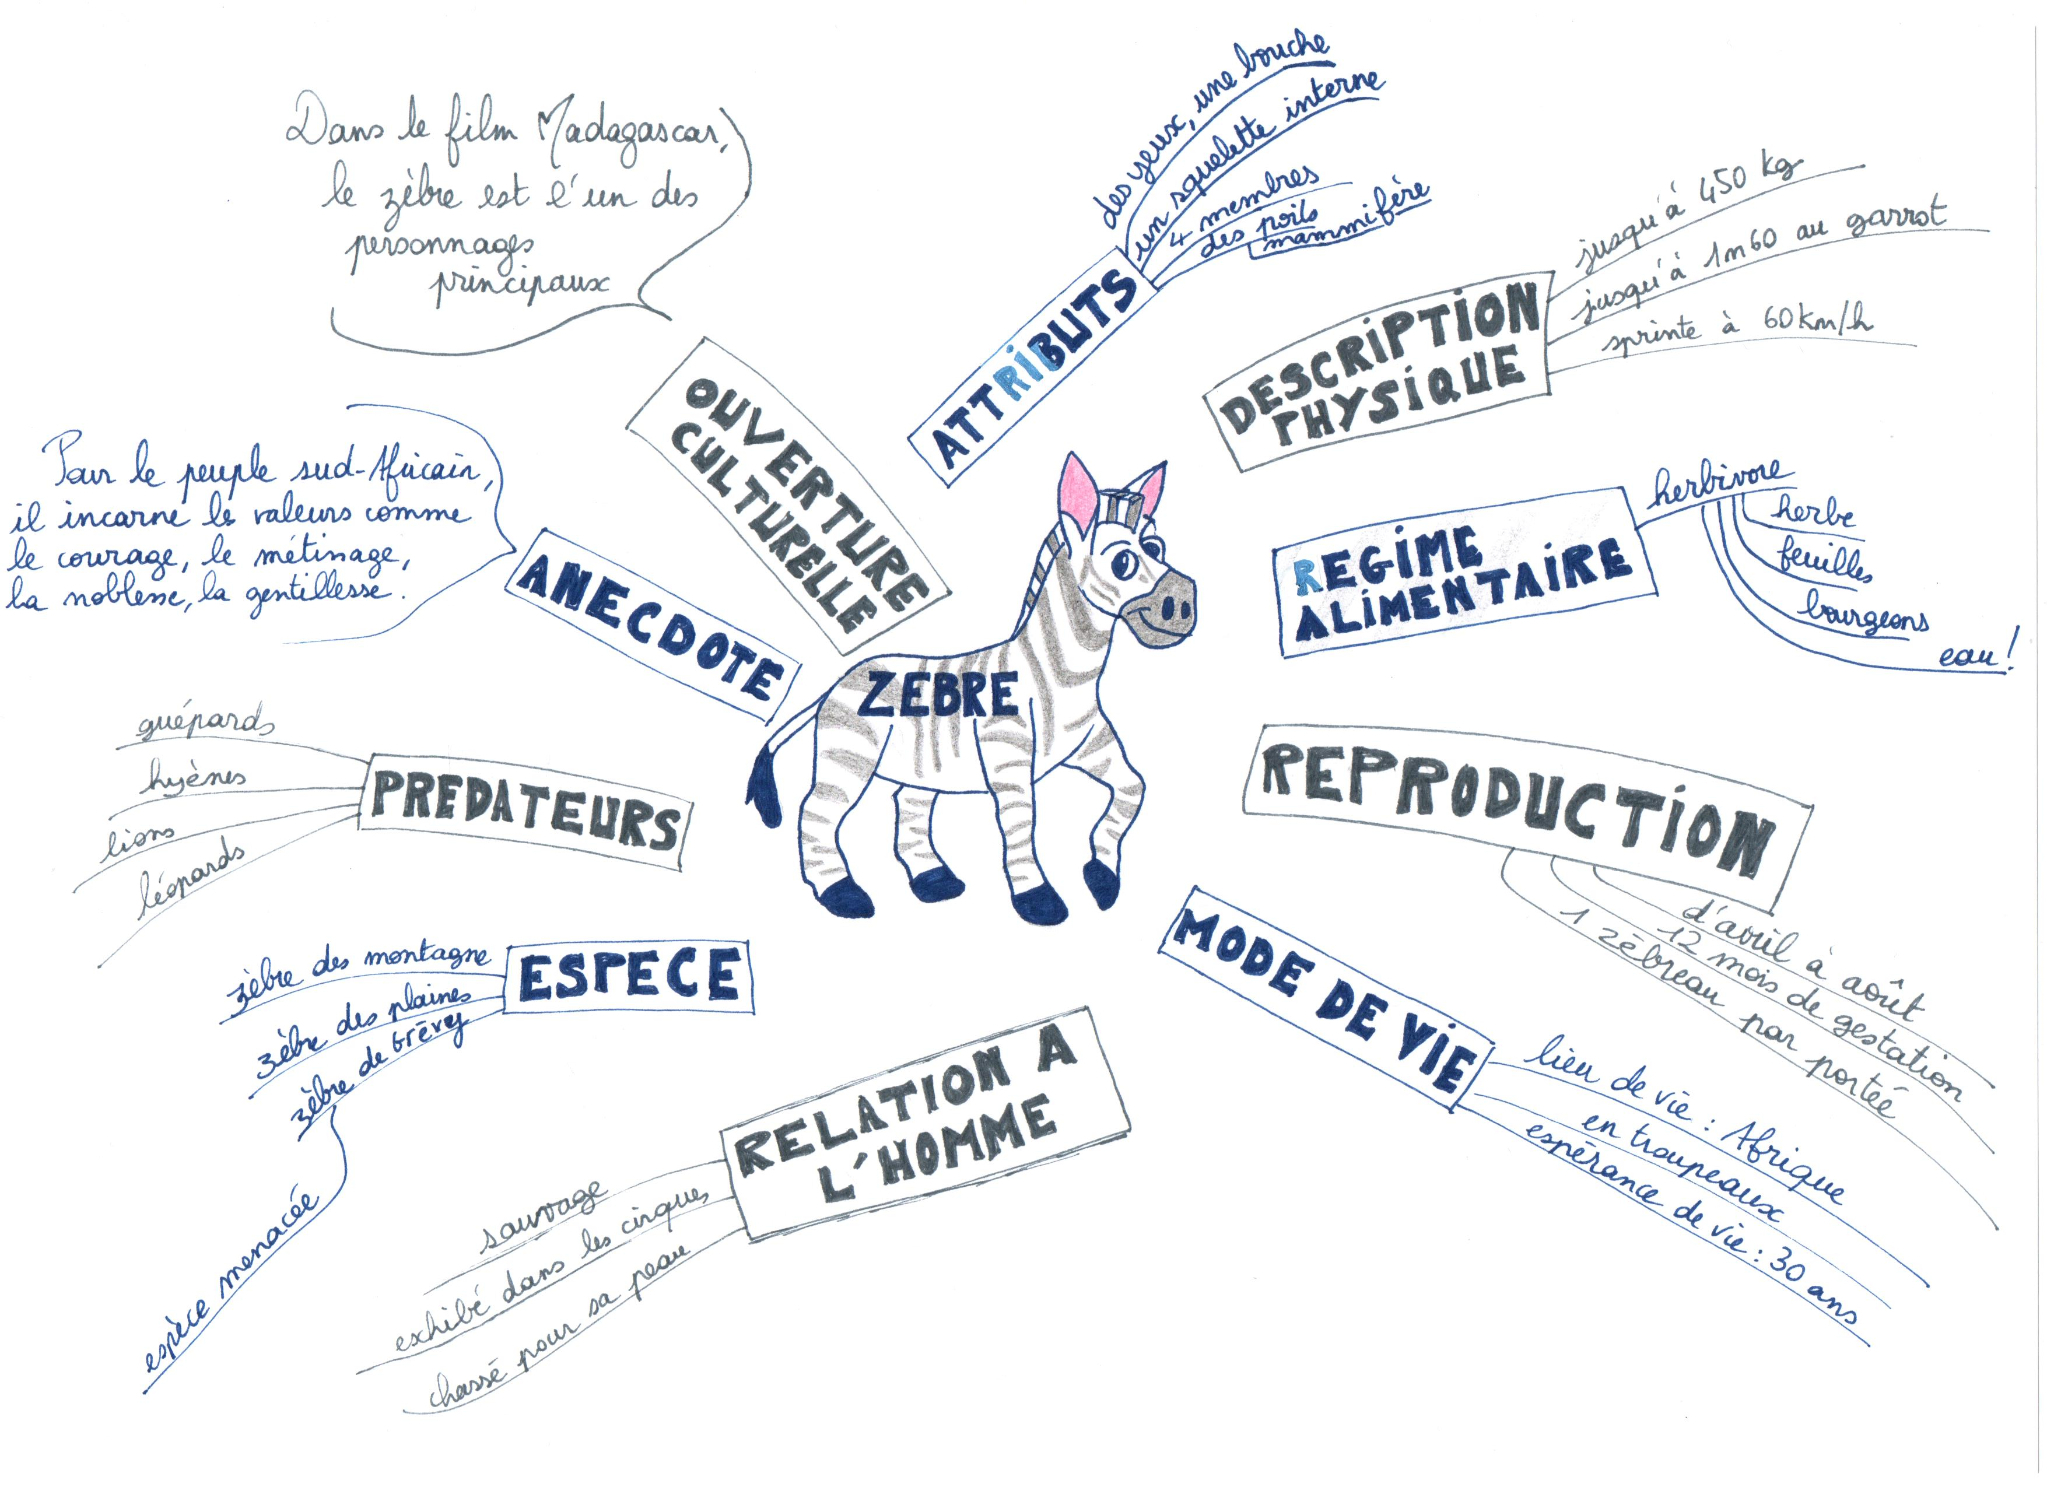 ZEBRE
ATTRIBUTS
des yeux, une bouche
un squelette interne
4 membres
des poils
mammifère
DESCRIPTION
PHYSIQUE
jusqu'à 450 kg
jusqu'à 1m60 au garrot
sprinte à 60km/h
REGIME
ALIMENTAIRE
herbivore
herbe
feuilles
bourgeons
eau!
REPRODUCTION
d'avril à août
12 mois de gestation
1 zébreau par porteé
MODE DE VIE
lieu de vie : Afrique
en troupeaux
espérance de vie : 30 ans
RELATION A
L'HOMME
sauvage
exhibé dans les cirques
chassé pour sa peau
ESPECE
zèbre des montagne
zèbre des plaines
zèbre de Grévy
espèce menacée
PREDATEURS
guépards
hyènes
lions
léopards
ANECDOTE
Pour le peuple sud-Africain,
il incarne les valeurs comme
le courage, le métinage,
la noblesse, la gentillesse.
OUVERTURE
CULTURELLE
Dans le film Madagascar,
le zèbre est l'un des
personnages
principaux